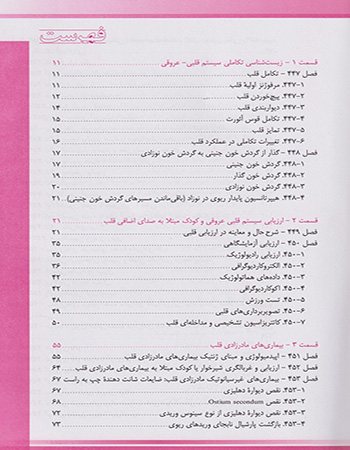 فهرست
قسمت ۱ - زیست‌شناسی تکاملی سیستم قلبی- عروقی ۱۱
فصل ۴۴۷ - تکامل قلب ۱۱
۴۴۷-۱. مرفوژنز اولیهٔ قلب ۱۱
۴۴۷-۲. پیچ‌خوردن قلب ۱۲
۴۴۷-۳. دیواربندی قلب ۱۴
۴۴۷-۴. تکامل قوس آئورت ۱۵
۴۴۷-۵. تمایز قلب ۱۵
۴۴۷-۶. تغییرات تکاملی در عملکرد قلب ۱۶
فصل ۴۴۸ - گذار از گردش خون جنینی به گردش خون نوزادی ۱۷
۴۴۸-۱. گردش خون جنینی ۱۷
۴۴۸-۲. گردش خون گذار ۱۹
۴۴۸-۳. گردش خون نوزادی ۲۰
۴۴۸-۴. هیپرتانسیون پایدار ریوی در نوزاد (باقی‌ماندن مسیرهای گردش خون جنینی) ۲۱
قسمت ۲ - ارزیابی سیستم قلبی عروقی و کودک مبتلا به صدای اضافی قلب ۲۱
فصل ۴۴۹ - شرح حال و معاینه در ارزیابی قلب ۲۱
فصل ۴۵۰ - ارزیابی آزمایشگاهی ۳۵
۴۵۰-۱. ارزیابی رادیولوژیک ۳۵
۴۵۰-۲. الکتروکاردیوگرافی ۳۶
۴۵۰-۳. داده‌های هماتولوژیک ۴۲
۴۵۰-۴. اکوکاردیوگرافی ۴۳
۴۵۰-۵. تست ورزش ۴۸
۴۵۰-۶. تصویربرداری‌های قلبی ۴۹
۴۵۰-۷. کاتتریزاسیون تشخیصی و مداخله‌ای قلب ۵۰
قسمت ۳ - بیماری‌های مادرزادی قلب ۵۵
فصل ۴۵۱ - اپیدمیولوژی و مبنای ژنتیک بیماری‌های مادرزادی قلب ۵۵
فصل ۴۵۲ - ارزیابی و غربالگری شیرخوار یا کودک مبتلا به بیماری‌های مادرزادی قلب ۶۴
فصل ۴۵۳ - بیماری‌های غیرسیانوتیک مادرزادی قلب: ضایعات شانت دهندهٔ چپ به راست ۶۷
۴۵۳-۱. نقص دیوارهٔ دهلیزی ۶۷
۴۵۳-۲. نقص Ostium secondum ۶۸
۴۵۳-۳. نقص دیوارهٔ دهلیزی از نوع سینوس وریدی ۷۲
۴۵۳-۴. بازگشت پارشیال نابجای وریدهای ریوی ۷۳